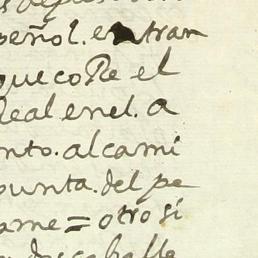 peñol. entran
que coRe el
Real enel. a
nto. alcami
punta. del pe
ame = otro si